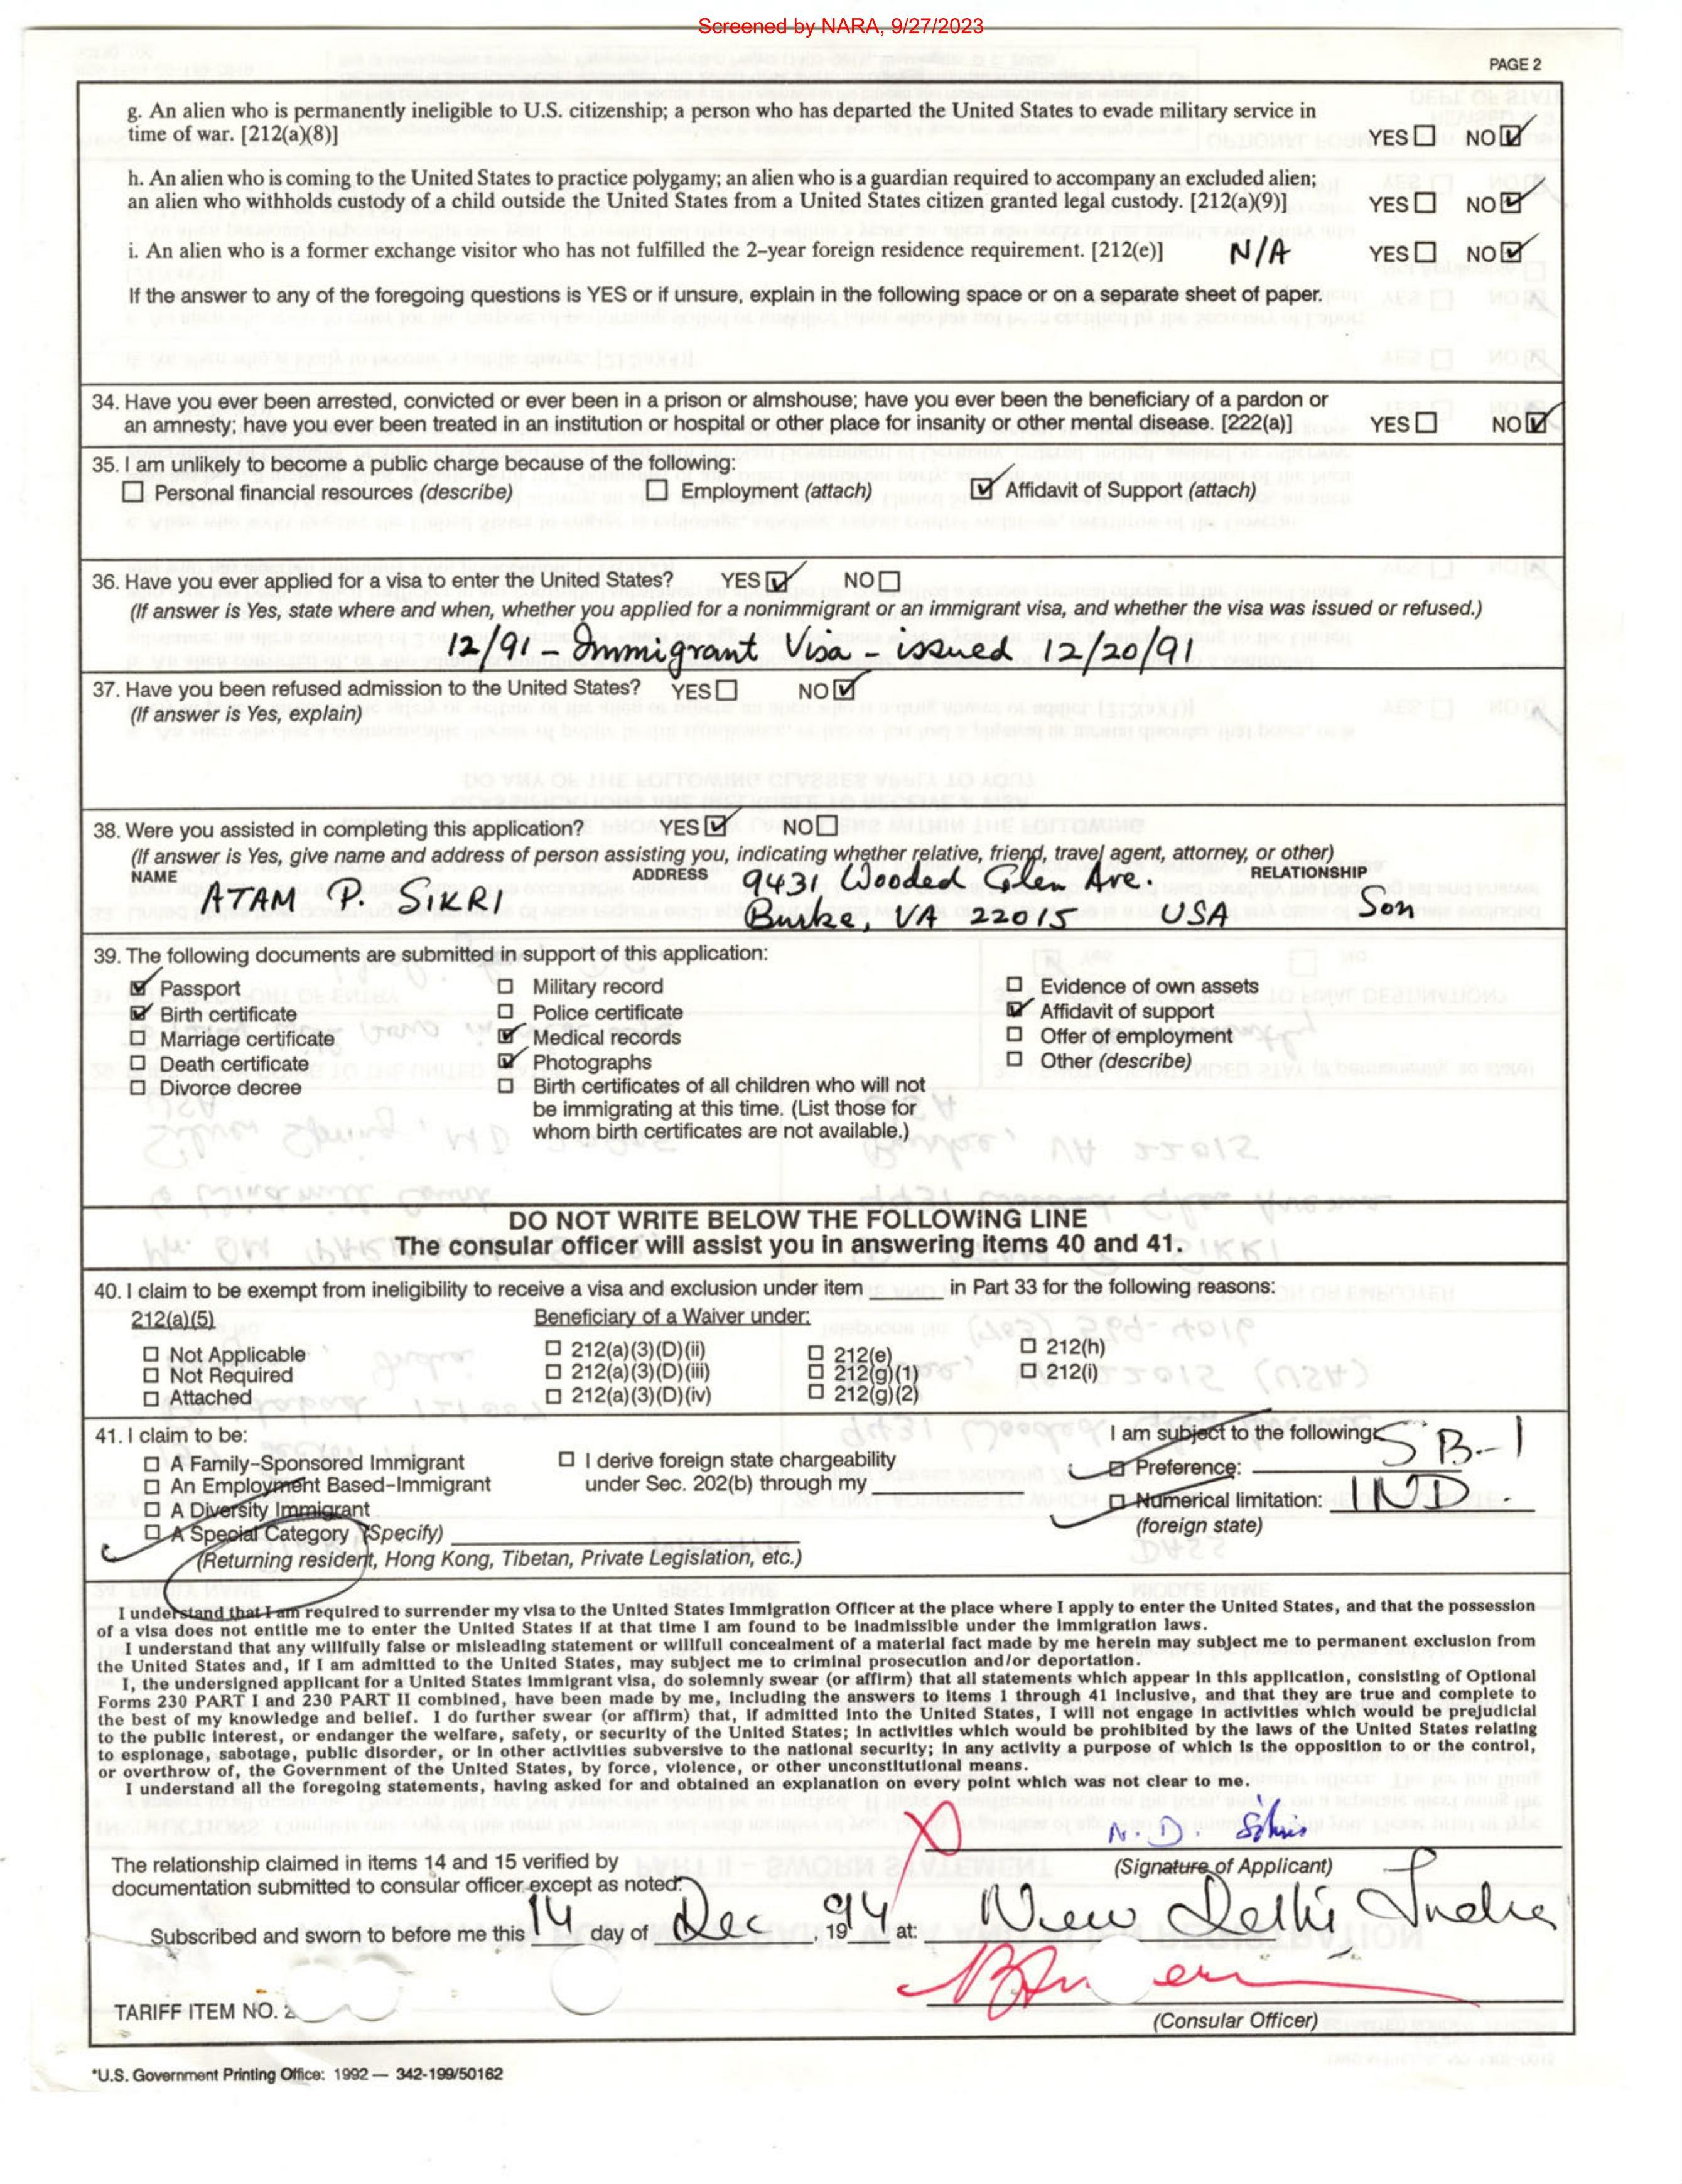 Screened by NARA, 9/27/2023
PAGE 2
g. An alien who is permanently ineligible to U.S. citizenship; a person who has departed the United States to evade military service in
time of war. [212(a)(8)] YES NO
h. An alien who is coming to the United States to practice polygamy; an alien who is a guardian required to accompany an excluded alien;
an alien who withholds custody of a child outside the United States from a United States citizen granted legal custody. [212(a)(9)] YES NO
i. An alien who is a former exchange visitor who has not fulfilled the 2-year foreign residence requirement. [212(e)] N/A YES NO
If the answer to any of the foregoing questions is YES or if unsure, explain in the following space or on a separate sheet of paper.
34. Have you ever been arrested, convicted or ever been in a prison or almshouse; have you ever been the beneficiary of a pardon or
an amnesty; have you ever been treated in an institution or hospital or other place for insanity or other mental disease. [222(a)] YES NO
35. I am unlikely to become a public charge because of the following:
Personal financial resources (describe) Employment (attach) Affidavit of Support (attach)
36. Have you ever applied for a visa to enter the United States? YES NO
(If answer is Yes, state where and when, whether you applied for a nonimmigrant or an immigrant visa, and whether the visa was issued or refused.)
12/91 - Immigrant Visa - issued 12/20/91
37. Have you been refused admission to the United States? YES NO
(If answer is Yes, explain)
38. Were you assisted in completing this application? YES NO
(If answer is Yes, give name and address of person assisting you, indicating whether relative, friend, travel agent, attorney, or other)
NAME ADDRESS RELATIONSHIP
ATAM P. SIKRI 9431 Wooded Glen Ave. Son
Burke, VA 22015 USA
39. The following documents are submitted in support of this application:
Passport Military record Evidence of own assets
Birth certificate Police certificate Affidavit of support
Marriage certificate Medical records Offer of employment
Death certificate Photographs Other (describe)
Divorce decree Birth certificates of all children who will not
be immigrating at this time. (List those for
whom birth certificates are not available.)
DO NOT WRITE BELOW THE FOLLOWING LINE
The consular officer will assist you in answering items 40 and 41.
40. I claim to be exempt from ineligibility to receive a visa and exclusion under item ______ in Part 33 for the following reasons:
212(a)(5) Beneficiary of a Waiver under:
Not Applicable 212(a)(3)(D)(ii) 212(e) 212(h)
Not Required 212(a)(3)(D)(iii) 212(g)(1) 212(i)
Attached 212(a)(3)(D)(iv) 212(g)(2)
41. I claim to be: I am subject to the following:
A Family-Sponsored Immigrant I derive foreign state chargeability Preference: SB-1
An Employment Based-Immigrant under Sec. 202(b) through my
A Diversity Immigrant Numerical limitation: IND.
A Special Category (Specify) (foreign state)
(Returning resident, Hong Kong, Tibetan, Private Legislation, etc.)
I understand that I am required to surrender my visa to the United States Immigration Officer at the place where I apply to enter the United States, and that the possession
of a visa does not entitle me to enter the United States if at that time I am found to be inadmissible under the immigration laws.
I understand that any willfully false or misleading statement or willfull concealment of a material fact made by me herein may subject me to permanent exclusion from
the United States and, if I am admitted to the United States, may subject me to criminal prosecution and/or deportation.
I, the undersigned applicant for a United States immigrant visa, do solemnly swear (or affirm) that all statements which appear in this application, consisting of Optional
Forms 230 PART I and 230 PART II combined, have been made by me, including the answers to items 1 through 41 inclusive, and that they are true and complete to
the best of my knowledge and belief. I do further swear (or affirm) that, if admitted into the United States, I will not engage in activities which would be prejudicial
to the public interest, or endanger the welfare, safety, or security of the United States; in activities which would be prohibited by the laws of the United States relating
to espionage, sabotage, public disorder, or in other activities subversive to the national security; in any activity a purpose of which is the opposition to or the control,
or overthrow of, the Government of the United States, by force, violence, or other unconstitutional means.
I understand all the foregoing statements, having asked for and obtained an explanation on every point which was not clear to me.
N. D. Sikri
The relationship claimed in items 14 and 15 verified by (Signature of Applicant)
documentation submitted to consular officer except as noted:
Subscribed and sworn to before me this 14 day of Dec, 1994 at: New Delhi India
TARIFF ITEM NO. 2
(Consular Officer)
*U.S. Government Printing Office: 1992 — 342-199/50162